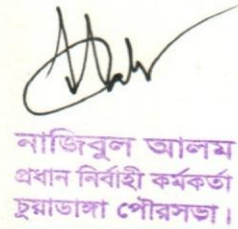 নাজিবুল আলম
প্রধান নির্বাহী কর্মকর্তা
চুয়াডাঙ্গা পৌরসভা।